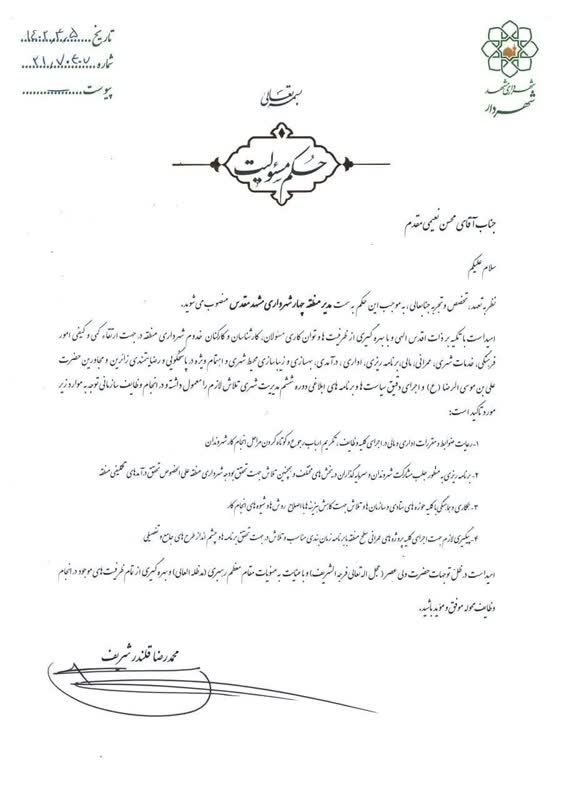 تاریخ ۱۴۰۲.۴.۵
شماره ۲۱/۷۰۴۰۷
پیوست
شهرداری مشهد
شهردار
بسمه تعالی
حکم مسئولیت
جناب آقای محسن نعیمی مقدم
سلام علیکم
نظر به تعهد، تخصص و تجربه جنابعالی، به موجب این حکم به سمت مدیر منطقه چهار شهرداری مشهد مقدس منصوب می شوید.
امید است با تکیه بر ذات اقدس الهی و با بهره گیری از ظرفیت ها و توان کاری مسئولان، کارشناسان و کارکنان خدوم شهرداری منطقه در جهت ارتقاء کمی و کیفی امور
فرهنگی، خدمات شهری، عمرانی، مالی، برنامه ریزی، اداری، درآمدی، بهسازی و زیباسازی محیط شهری و اهتمام ویژه در پاسخگویی و رضایتمندی زائرین و مجاورین حضرت
علی بن موسی الرضا (ع) و اجرای دقیق سیاست ها و برنامه های ابلاغی دوره ششم مدیریت شهری تلاش لازم را معمول داشته و در انجام وظایف سازمانی توجه به موارد زیر
مورد تاکید است:
۱- رعایت ضوابط و مقررات اداری و مالی در اجرای کلیه وظایف، تکریم ارباب رجوع و کوتاه کردن مراحل انجام کار شهروندان
۲- برنامه ریزی به منظور جلب مشارکت شهروندان و سرمایه گذاران در بخش های مختلف و همچنین تلاش جهت تحقق بودجه شهرداری منطقه علی الخصوص تحقق درآمدهای تکلیفی منطقه
۳- همکاری و هماهنگی با کلیه حوزه های ستادی و سازمان ها و تلاش جهت کاهش هزینه ها با اصلاح روش ها و شیوه های انجام کار
۴- پیگیری لازم جهت اجرای کلیه پروژه های عمرانی سطح منطقه با برنامه زمان بندی مناسب و تلاش در جهت تحقق برنامه ها و چشم انداز طرح های جامع و تفصیلی
امید است در ظل توجهات حضرت ولی عصر (عجل اله تعالی فرجه الشریف) و با عنایت به منویات مقام معظم رهبری (مدظله العالی) و بهره گیری از تمام ظرفیت های موجود در انجام
وظایف محوله موفق و مؤید باشید.
محمدرضا قلندر شریف